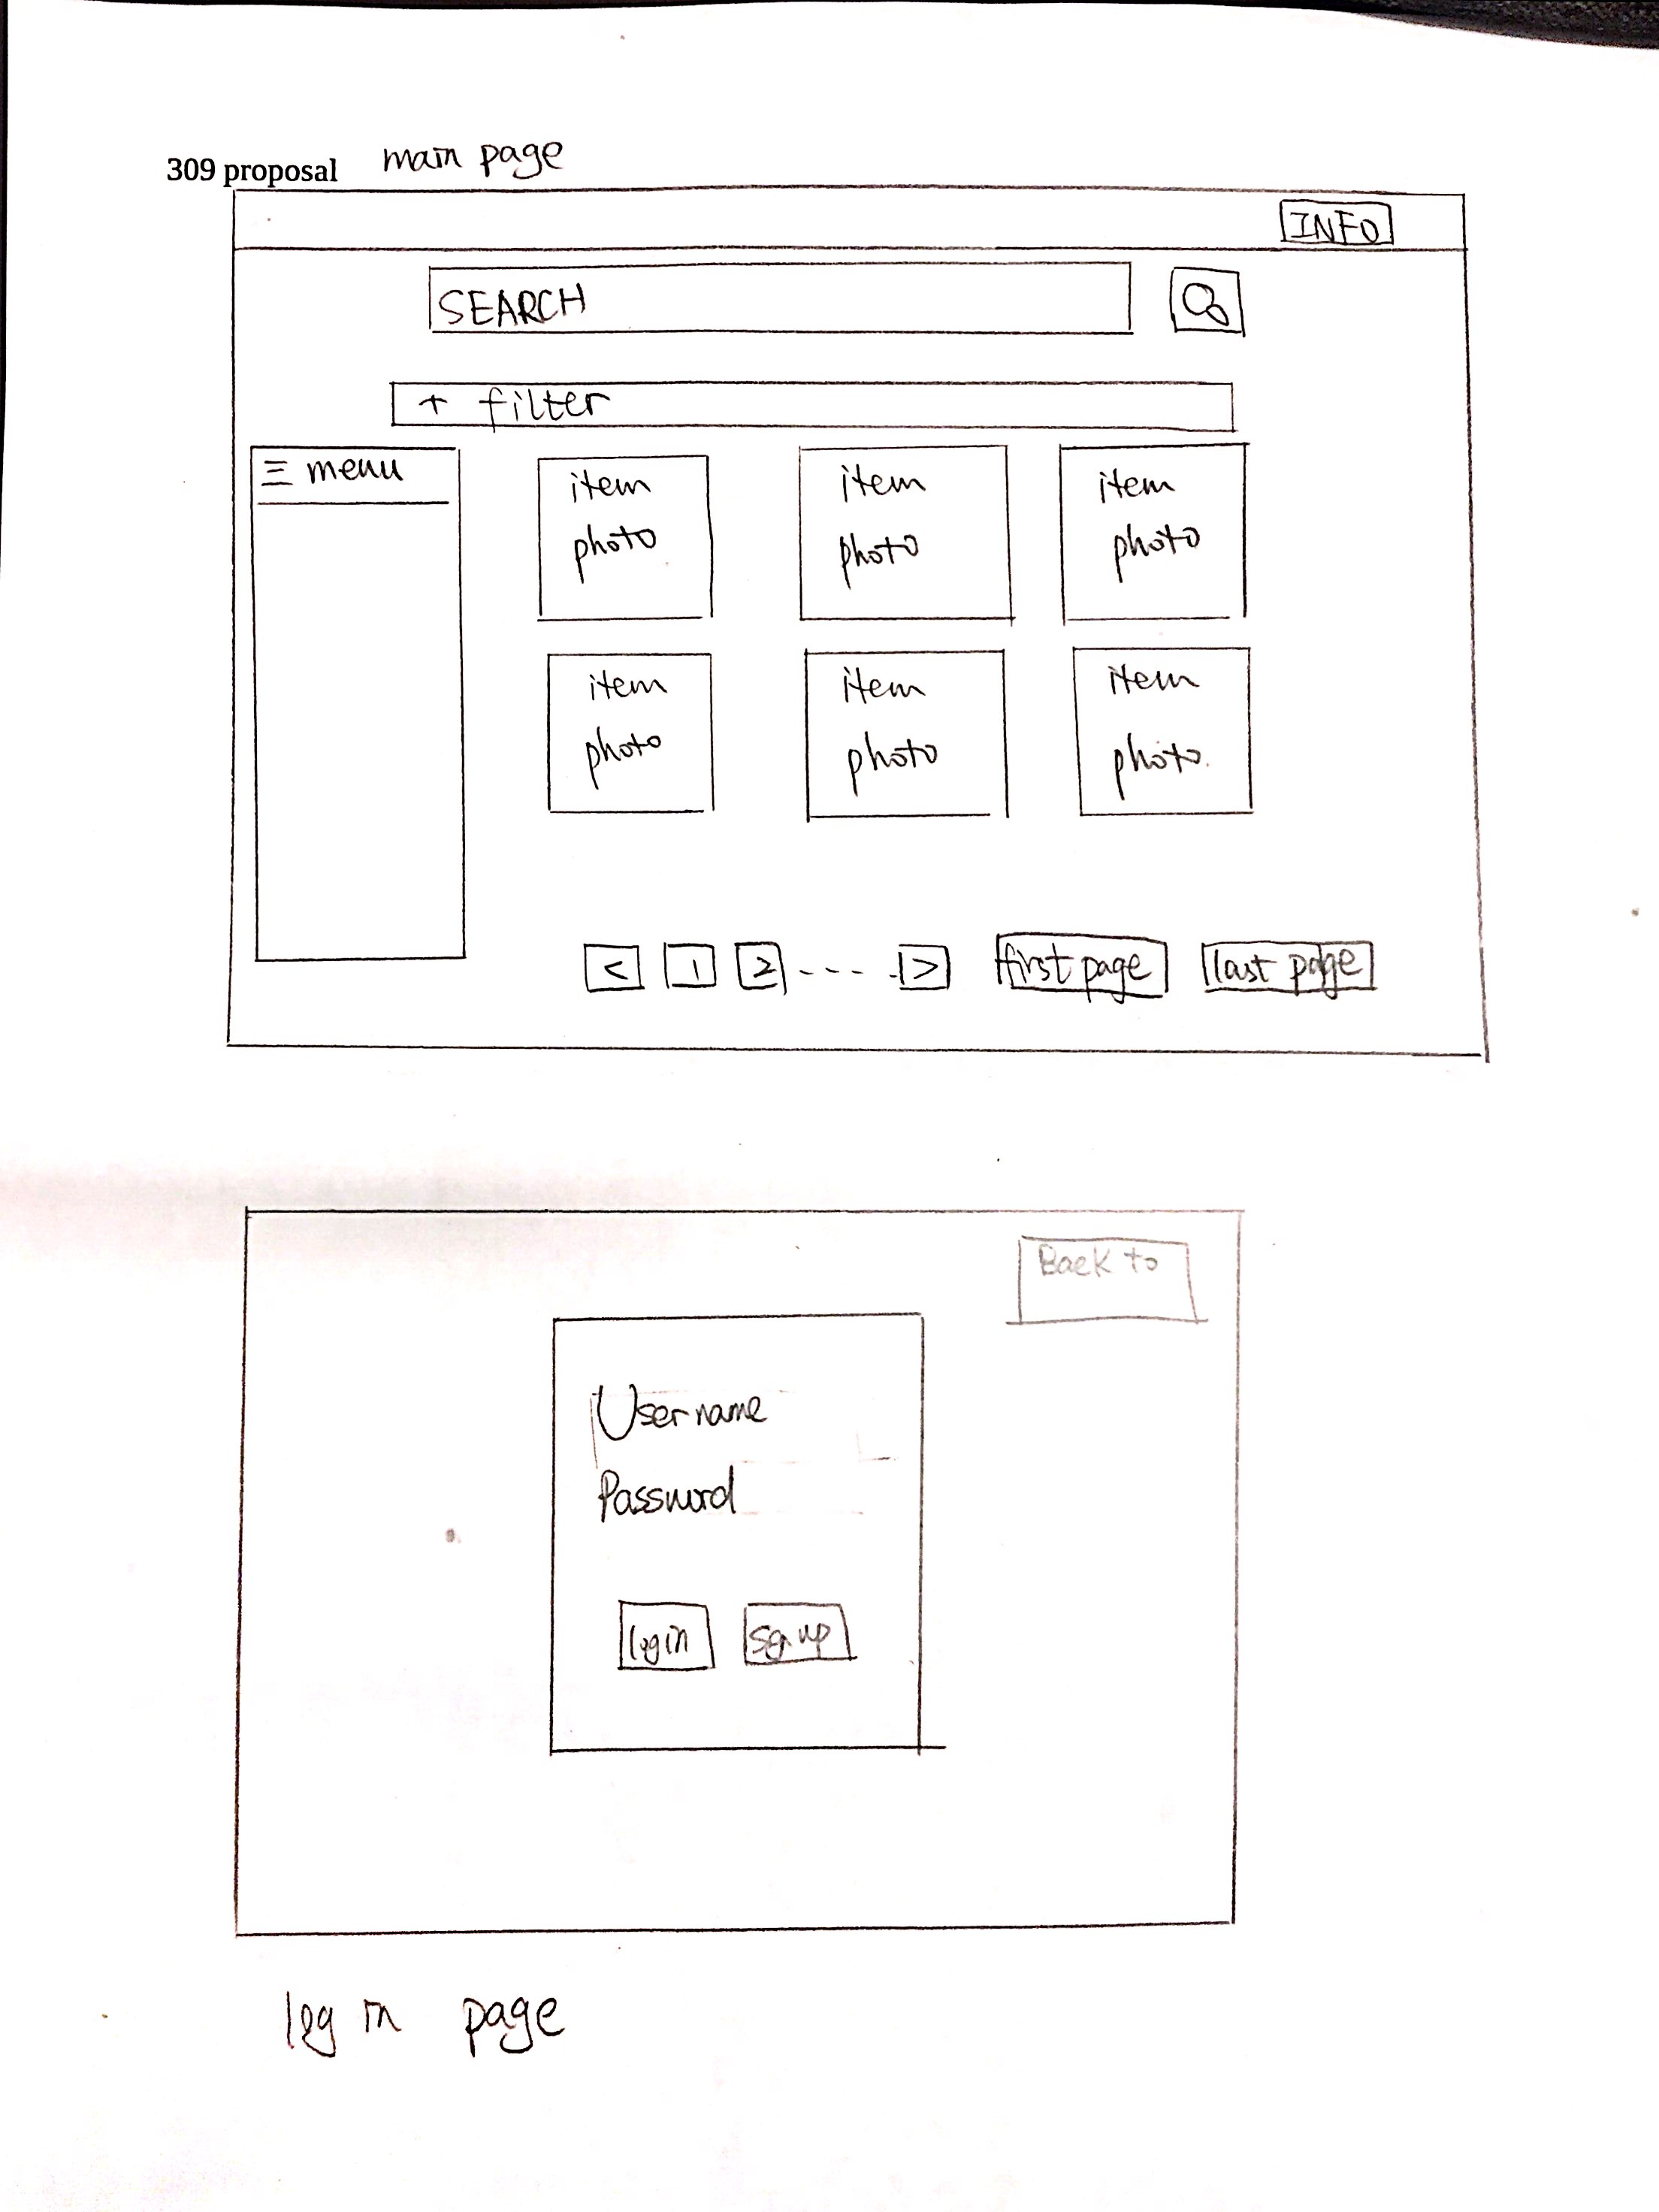 309 proposal main page
INFO
SEARCH
+ filter
≡ menu
item photo
item photo
item photo
item photo
item photo
item photo.
< 1 2 - - - - > first page last page
Back to
Username
Password
login sign up
log in page